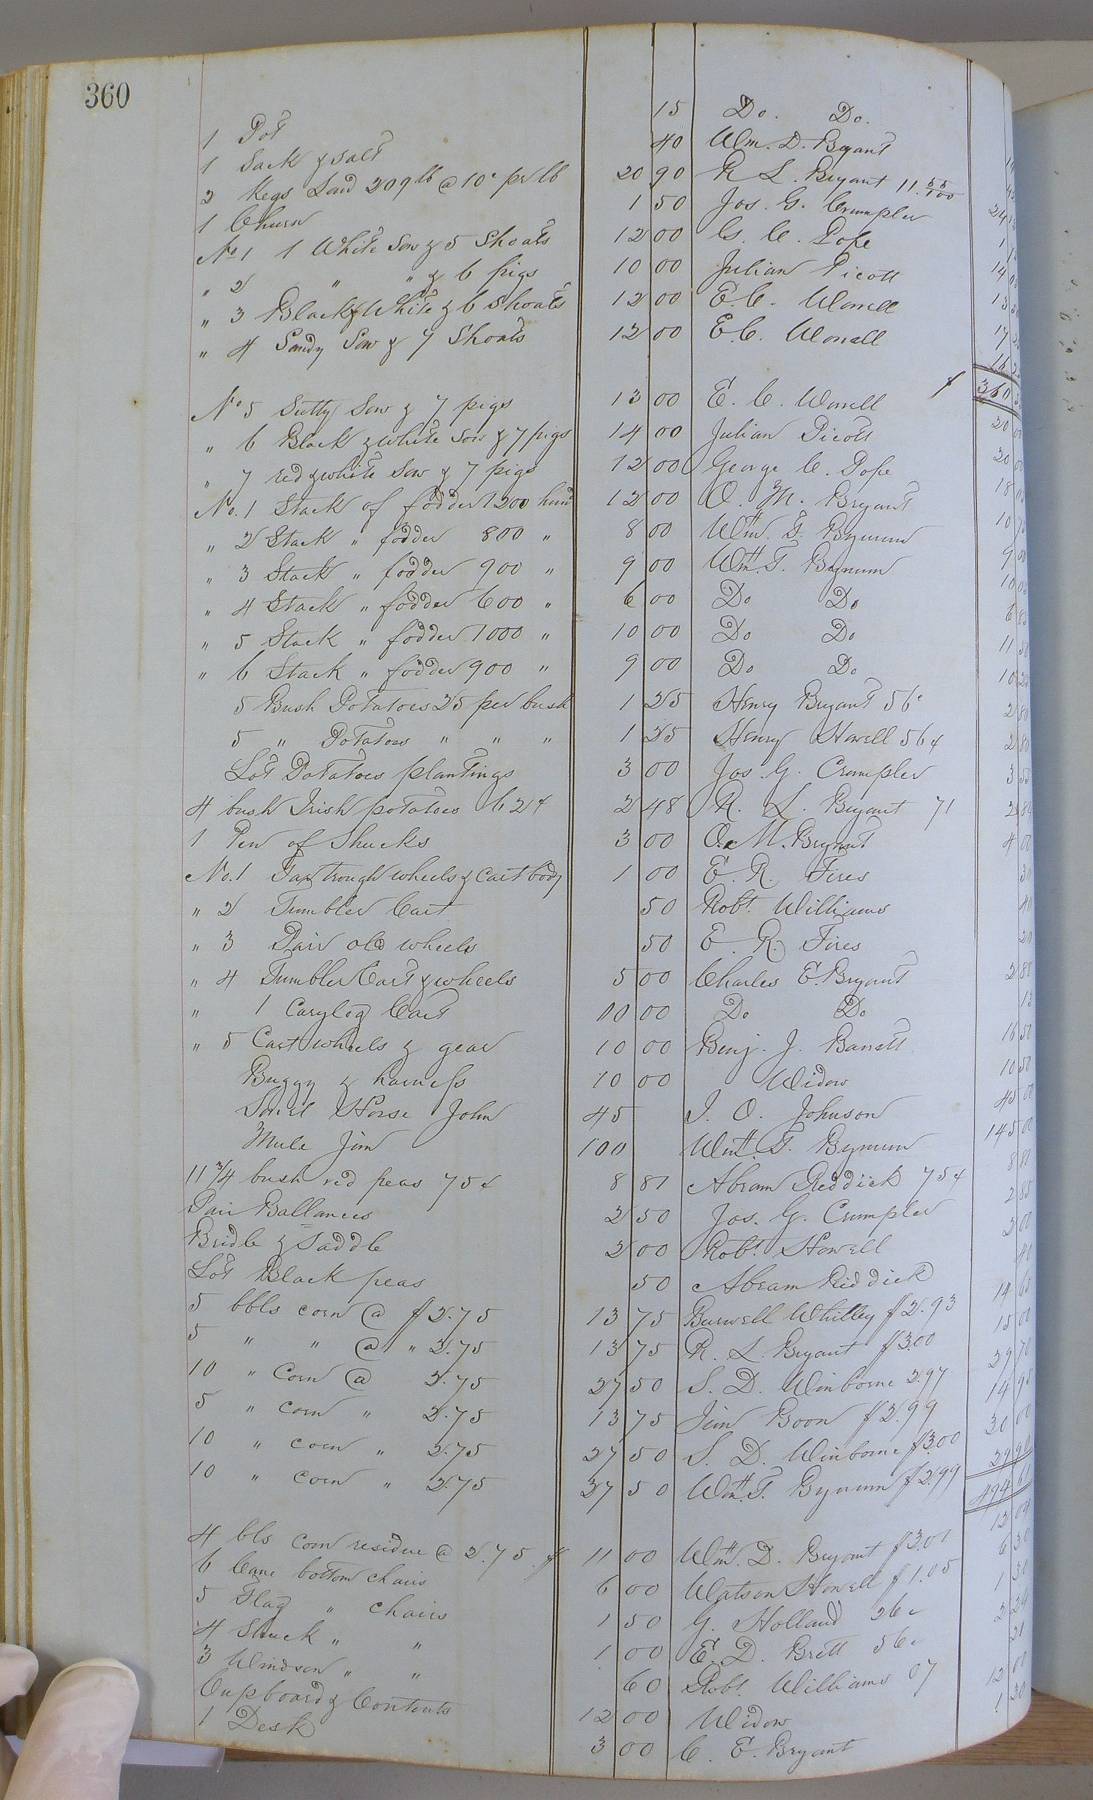 360
1 Pot 15 Do. Do.
1 Sack of salt 40 Wm. D. Bryant
2 Kegs Lard 209 lb @ 10c per lb 20 90 R. L. Bryant 11.55/100
1 Churn 1 50 Jos. G. Crumpler
No 1 1 White Sow & 5 Shoats 12 00 G. C. Pope
" 2 " " & 6 pigs 10 00 Julian Picott
" 3 Black & White & 6 Shoats 12 00 E. C. Worrell
" 4 Sandy Sow & 7 Shoats 12 00 E. C. Worrell
360
No 5 Sutty Sow & 7 pigs 13 00 E. C. Worrell
" 6 Black & white Sow & 7 pigs 14 00 Julian Picott
" 7 red & white Sow & 7 pigs 12 00 George C. Pope
No. 1 Stack of fodder 1200 hund 12 00 O. M. Bryant
" 2 Stack " fodder 800 " 8 00 Wm. T. Bynum
" 3 Stack " fodder 900 " 9 00 Wm. T. Bynum
" 4 Stack " fodder 600 " 6 00 Do Do
" 5 Stack " fodder 1000 " 10 00 Do Do
" 6 Stack " fodder 900 " 9 00 Do Do
5 Bush Potatoes 25 per bush 1 25 Henry Bryant 56c
5 " Potatoes " " " 1 25 Henry Howell 56¢
Lot Potatoes plantings 3 00 Jos. G. Crumpler
4 bush Irish potatoes 62¢ 2 48 R. L. Bryant 71
1 Pen of Shucks 3 00 O. M. Bryant 4 00
No. 1 wheels & Cart body 1 00 E. R. Fires
" 2 Tumbler Cart 50 Robt. Williams
" 3 Pair old wheels 50 E. R. Fires
" 4 Tumbler Cart & wheels 5 00 Charles E. Bryant
" 1 Carylog Cart 10 00 Do Do
" 5 Cart wheels & gear 10 00 Benj. J. Barrett
Buggy & harness 10 00 Widow
Sorrel Horse John 45 J. O. Johnson 45 00
Mule Jim 100 Wm. T. Bynum 145 00
11 3/4 bush red peas 75¢ 8 81 Abram Reddick 75¢ 8 81
Pair Ballances 2 50 Jos. G. Crumpler 2 85
Bridle & Saddle 2 00 Robt. Howell 2 00
Lot Black peas 50 Abram Riddick
5 bbls corn @ $2.75 13 75 Burwell Whitley $2.93 14 65
5 " " @ " 2.75 13 75 R. L. Bryant $3.00 15 00
10 " Corn @ 2.75 27 50 S. D. Winborne 2.97 29 70
5 " corn " 2.75 13 75 Jim Boon $2.99 14 95
10 " corn " 2.75 27 50 S. D. Winborne $3.00 30 00
10 " corn " 2.75 27 50 Wm. T. Bynum $2.99 29 90
4 bls corn residue @ 2.75 11 00 Wm. D. Bryant $3.01
6 Cane bottom chairs 6 00 Watson Howell $1.05 6 30
5 Flag " chairs 1 50 G. Holland 26c 1 30
4 Shuck " " 1 00 E. D. Britt 56c
3 Windsor " " 60 Robt. Williams 07 21
Cupboard & Contents 12 00 Widow 12 00
1 Desk 3 00 C. E. Bryant